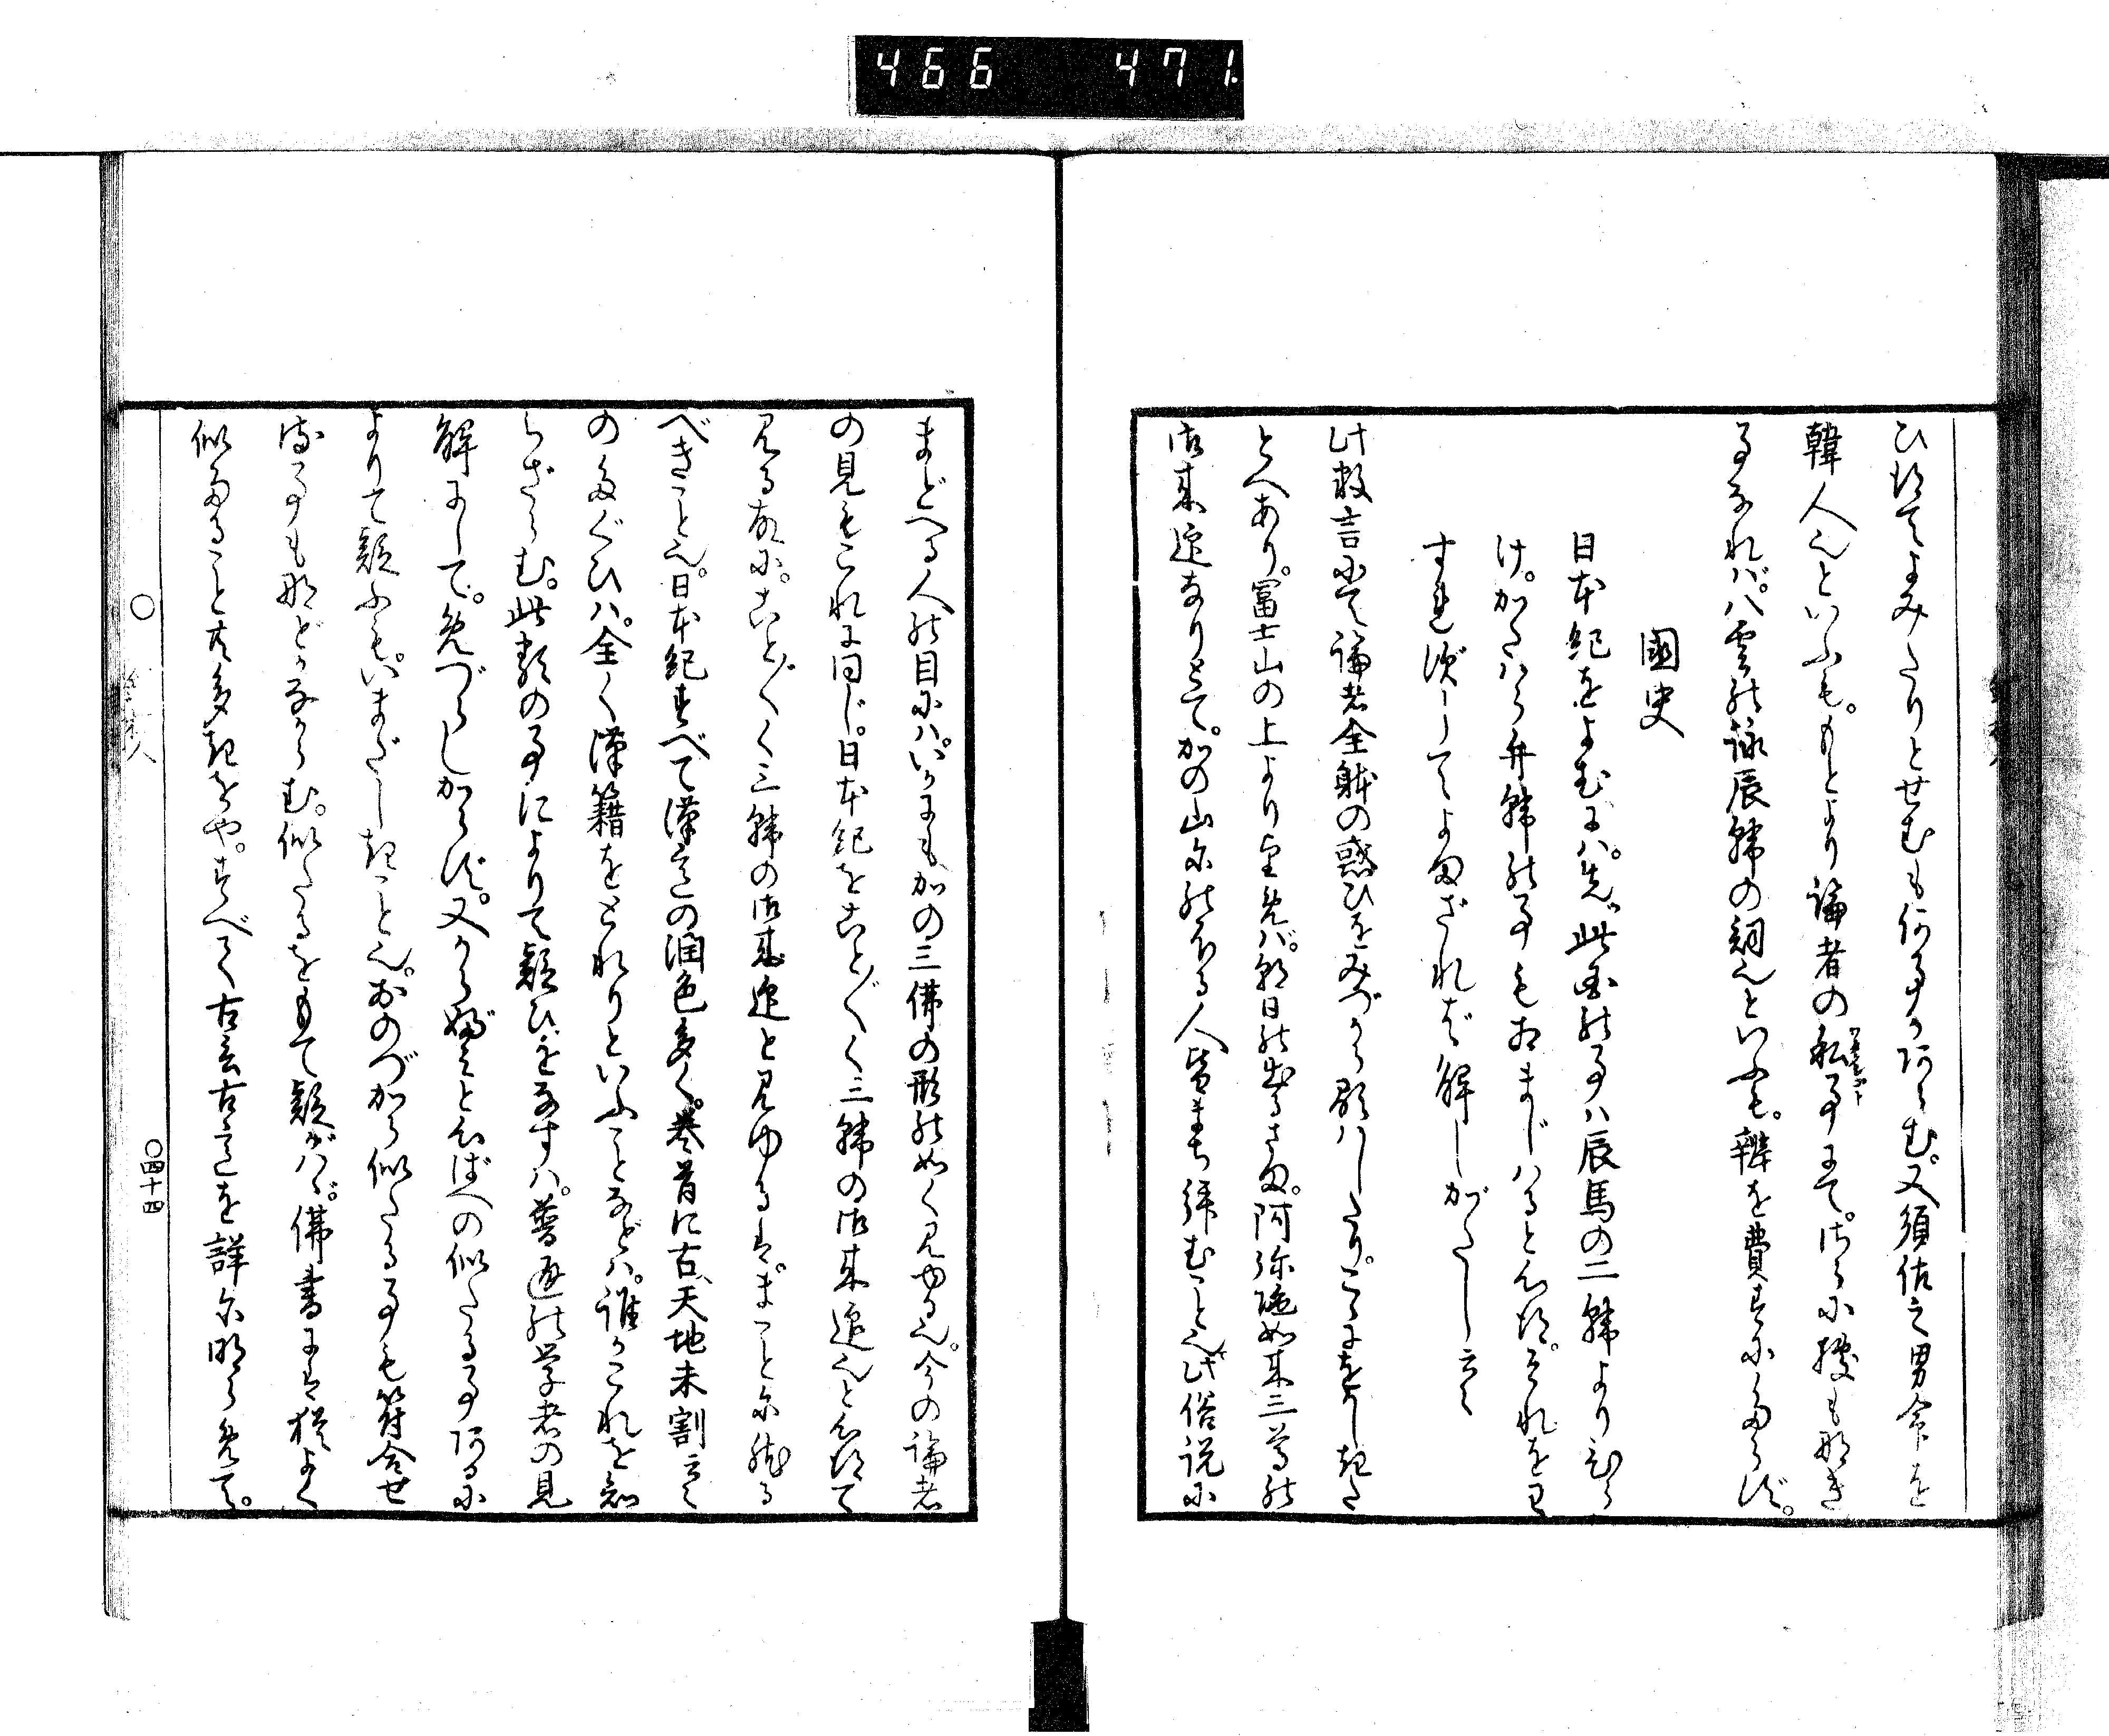 466 471
ひがてよみたりとせむも何事かあらむ。又須佐之男命を
韓人也といふも。もとより論者の私事にて。さらに據も那き
事なれバ。八雲の詠辰韓の詞也といふも。辨を費すにたらず。
國史
日本紀をよむにハ。先此国の事ハ辰馬の二韓よりひら
け。かたハら弁韓の事もあまじハると心得。それをわ
すれずしてよまざれば解しがたし云々
此數言にて論者全躰の惑ひをみづから顕ハしたり。こゝにをかしきた
とへあり。冨士山の上より望めバ。朝日の出るさま。阿弥陁如来三尊の
御来迎なりとて。かの山にのぼる人皆まち拝むこと也。此俗説に
まどへる人の目にハ。いかにもかの三佛の形の如く見ゆる也。今の論者
の見もこれに同じ。日本紀をこと〲く三韓の御来迎也と心得て
見る故に。こと〲く三韓の御来迎と見ゆるは。まことに然る
べきこと也。日本紀すべて漢意の潤色多く。巻首に古天地未割云々
のたぐひハ。全く漢籍をとれりといふことなどハ。誰かこれを知
らざらむ。此類の事によりて疑ひをなすハ。普通の学者の見
解にして。めづらしからず。又から婦みと心ばへの似たる事あるに
よりて疑ふも。いまだしきこと也。おのづから似たる事も符合せ
る事も那どかなからむ。似たるをもて疑がハゞ。佛書にも猶よく
似たること共多きをや。すべて古言古意を詳に明らめて。
〇四十四